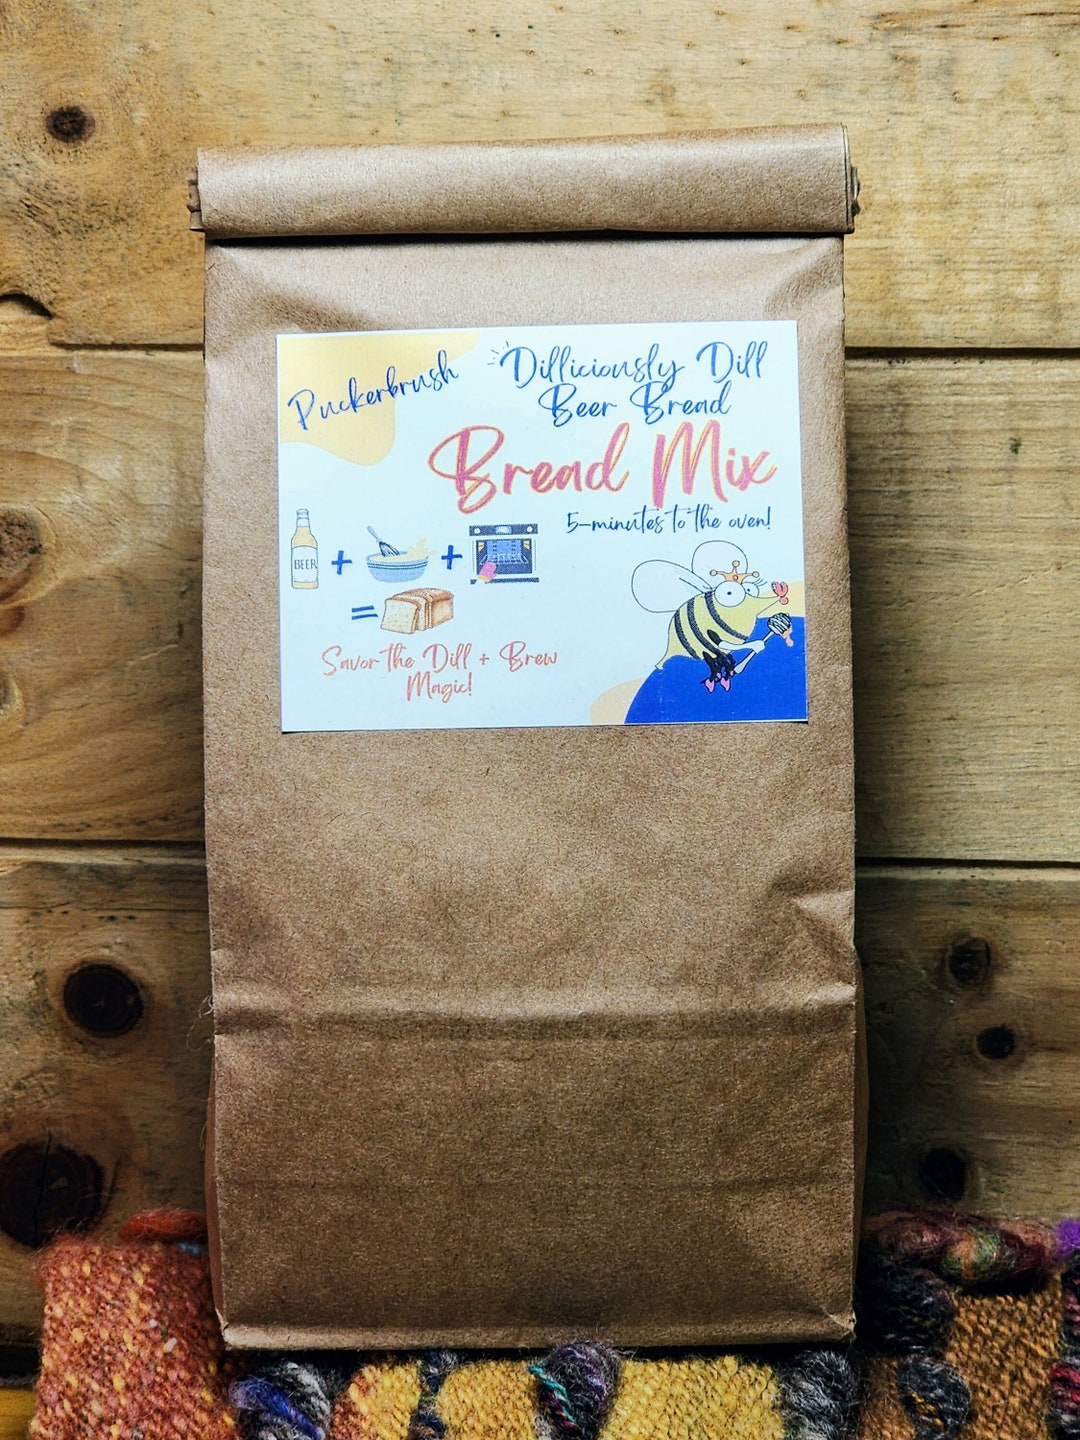 Puckerbrush
Dilliciously Dill
Beer Bread
Bread Mix
5-minutes to the oven!
BEER
+
+
=
Savor the Dill + Brew
Magic!